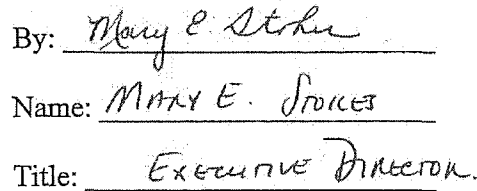 By: Mary E. Stokes
Name: MARY E. STOKES
Title: EXECUTIVE DIRECTOR.